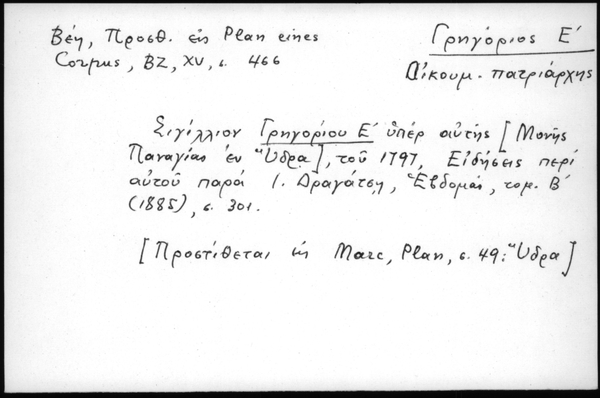 Βέη, Προσθ. εἰς Plan eines
Corpus, BZ, XV, σ. 466
Γρηγόριος Ε΄
Οἰκουμ. πατριάρχης
Σιγίλλιον Γρηγορίου Ε΄ ὑπέρ αὐτῆς [Μονῆς
Παναγίας ἐν Ὕδρᾳ], τοῦ 1797, Εἰδήσεις περί
αὐτοῦ παρά Ι. Δραγάτσῃ, Ἑβδομάς, τομ. Β΄
(1885), σ. 301.
[Προστίθεται εἰς Marc, Plan, σ. 49: Ὕδρα]